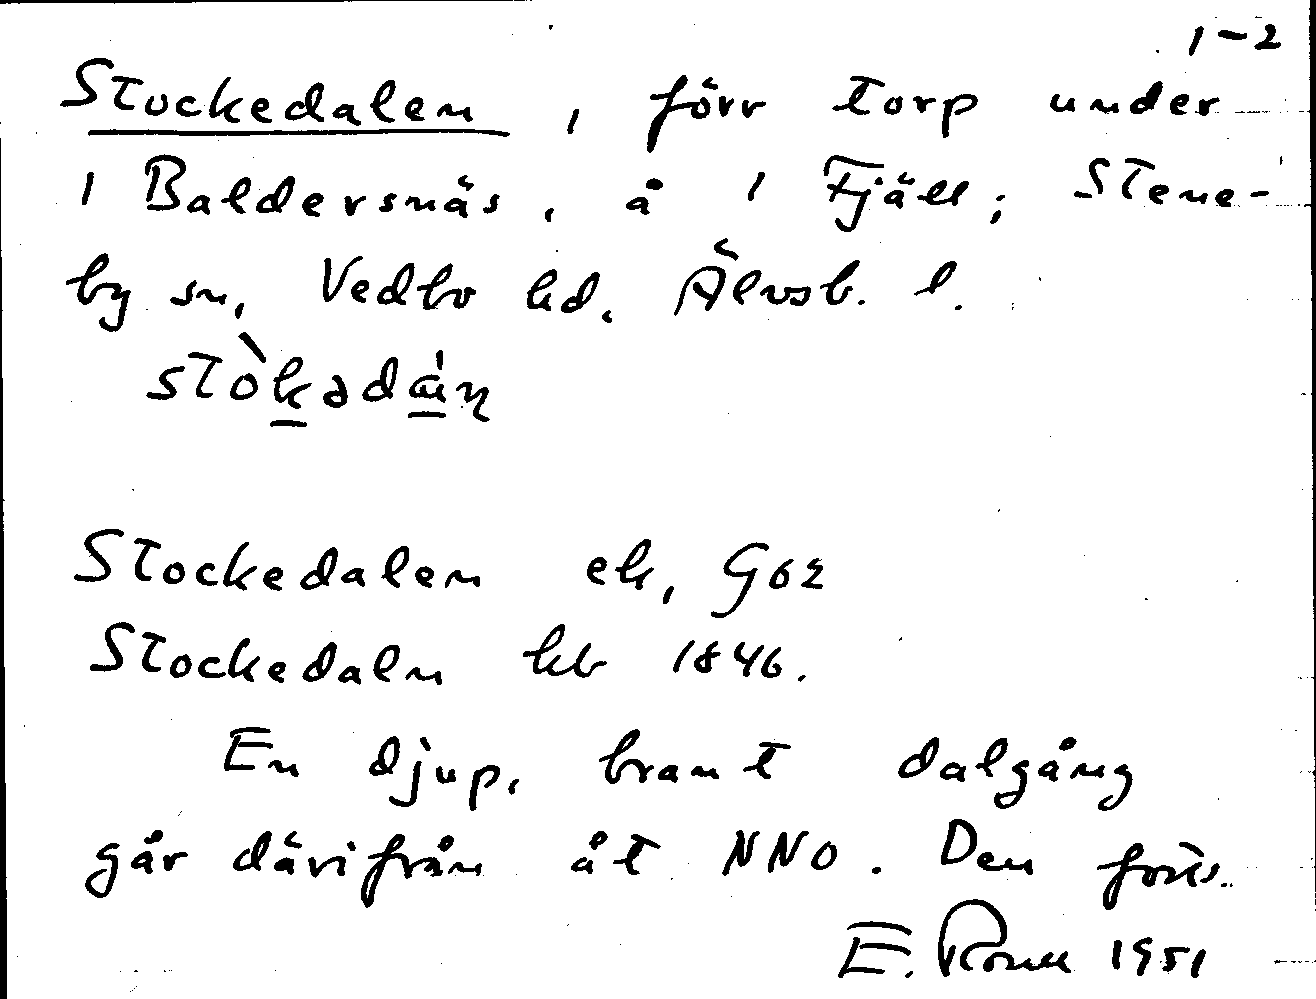 1-2
Stockedalen, förr torp under
1 Baldersnäs, å 1 Fjäll; Stene-
by sn, Vedbo hd, Älvsb. l.
Stockedalen ek, G62
Stockedaln kb 1846.
En djup, brant dalgång
går därifrån åt NNO. Den forts.
E. 1951